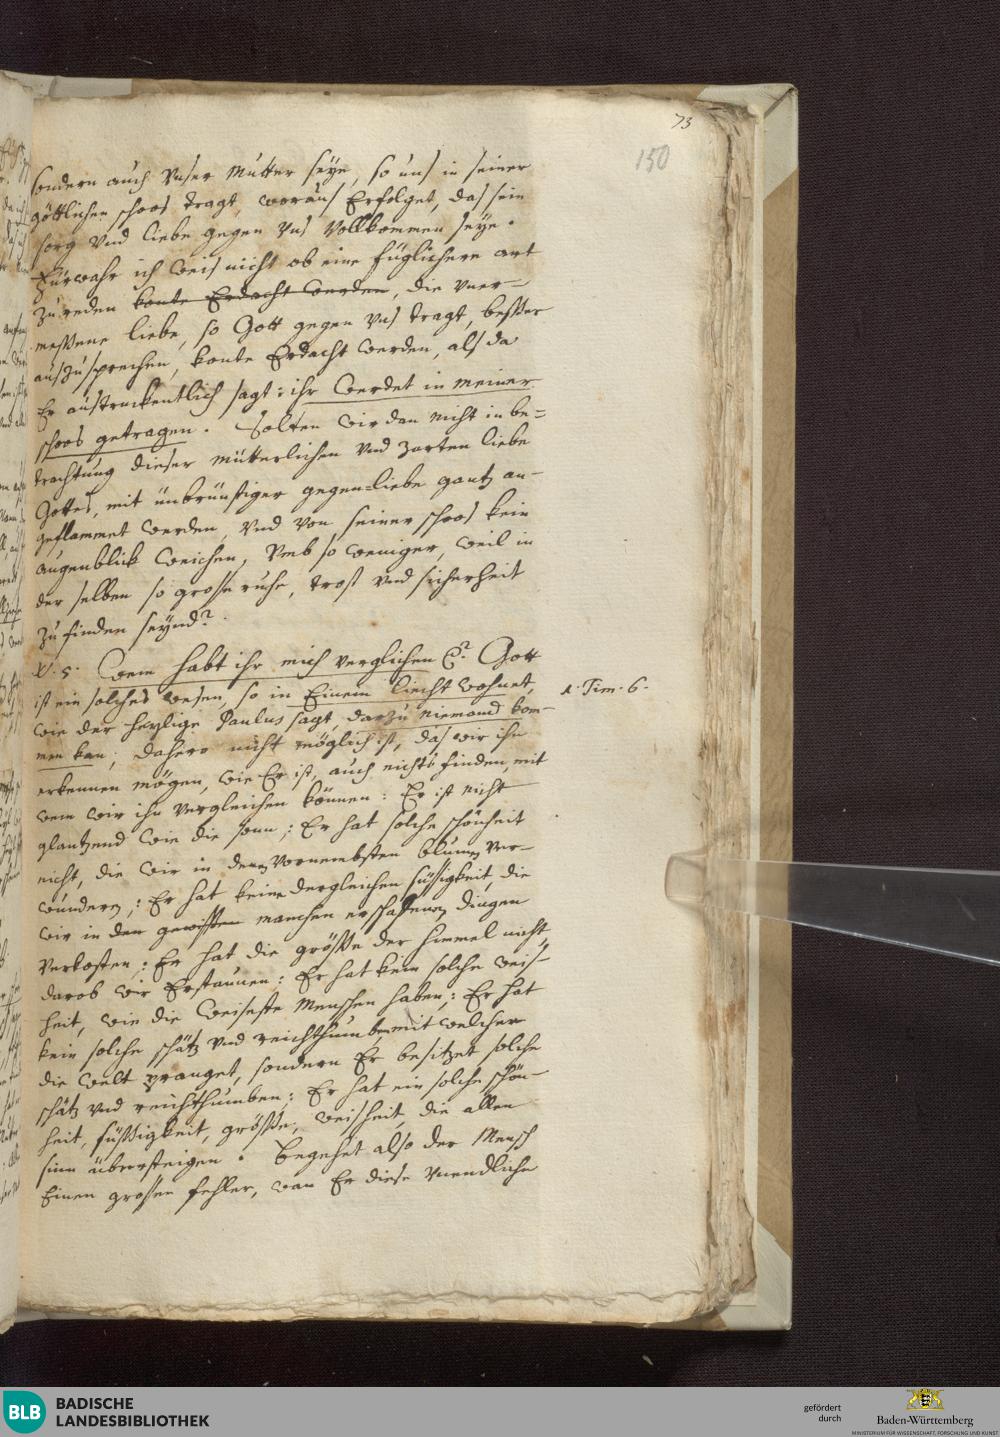 73
150
sondern auch vnser Mutter seÿe, so uns in seiner
göttlichen schoos tragt, woraus Erfolget, das sein
sorg vnd liebe gegen vns vollkommen seÿe.
Fürwahr ich weis nicht ob eine füglichere art
zu reden konte Erdacht werden, die vner-
meßene liebe, so Gott gegen vns tragt, beßer
auszusprechen, konte Erdacht werden, als da
Er austruckentlich sagt: ihr werdet in meiner
schoos getragen. Solten wir dan nicht in be=
trachtung dieser mütterlichen vnd zarten liebe
Gottes, mit inbrünstiger gegen=liebe gantz an-
geflammet werden, vnd von seiner schoos kein
augenblick weichen, vmb so weniger, weil in
der selben so grose ruhe, trost vnd sicherheit
zu finden seÿnd?
V. 5. Wem habt ihr mich verglichen &? Gott
ist ein solches wesen, so in Einem liecht wohnet,
1. Tim. 6.
wie der heylige Paulus sagt, darzu niemand kom-
men kan; dahero nicht möglich ist, das wir ihn
erkennen mögen, wie Er ist, auch nichts finden, mit
wem wir ihn vergleichen können: Er ist nicht
glantzend wie die sonn; Er hat solche schönheit
nicht, die wir in denen vornembsten blumen ver-
wundern; Er hat keine dergleichen süssigkeit, die
wir in den gewissen manchen erschaffenen dingen
verkosten; Er hat die größe der himmel nicht,
darob wir Erstaunen; Er hat kein solche weis-
heit, wie die Weiseste Menschen haben; Er hat
kein solche schätz vnd reichthumben mit welcher
die welt pranget, sondern Er besitzet solche
schätz vnd reichthumben; Er hat ein solche schön-
heit, süßigkeit, größe, weisheit, die allen
sinn übersteigen. Begehet also der Mensch
Einen grosen fehler, wan Er diese vnendliche
BLB
BADISCHE
LANDESBIBLIOTHEK
gefördert
durch
Baden-Württemberg
MINISTERIUM FÜR WISSENSCHAFT, FORSCHUNG UND KUNST